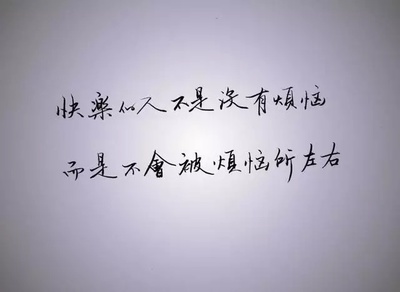 快樂的人不是沒有煩惱
而是不會被煩惱所左右